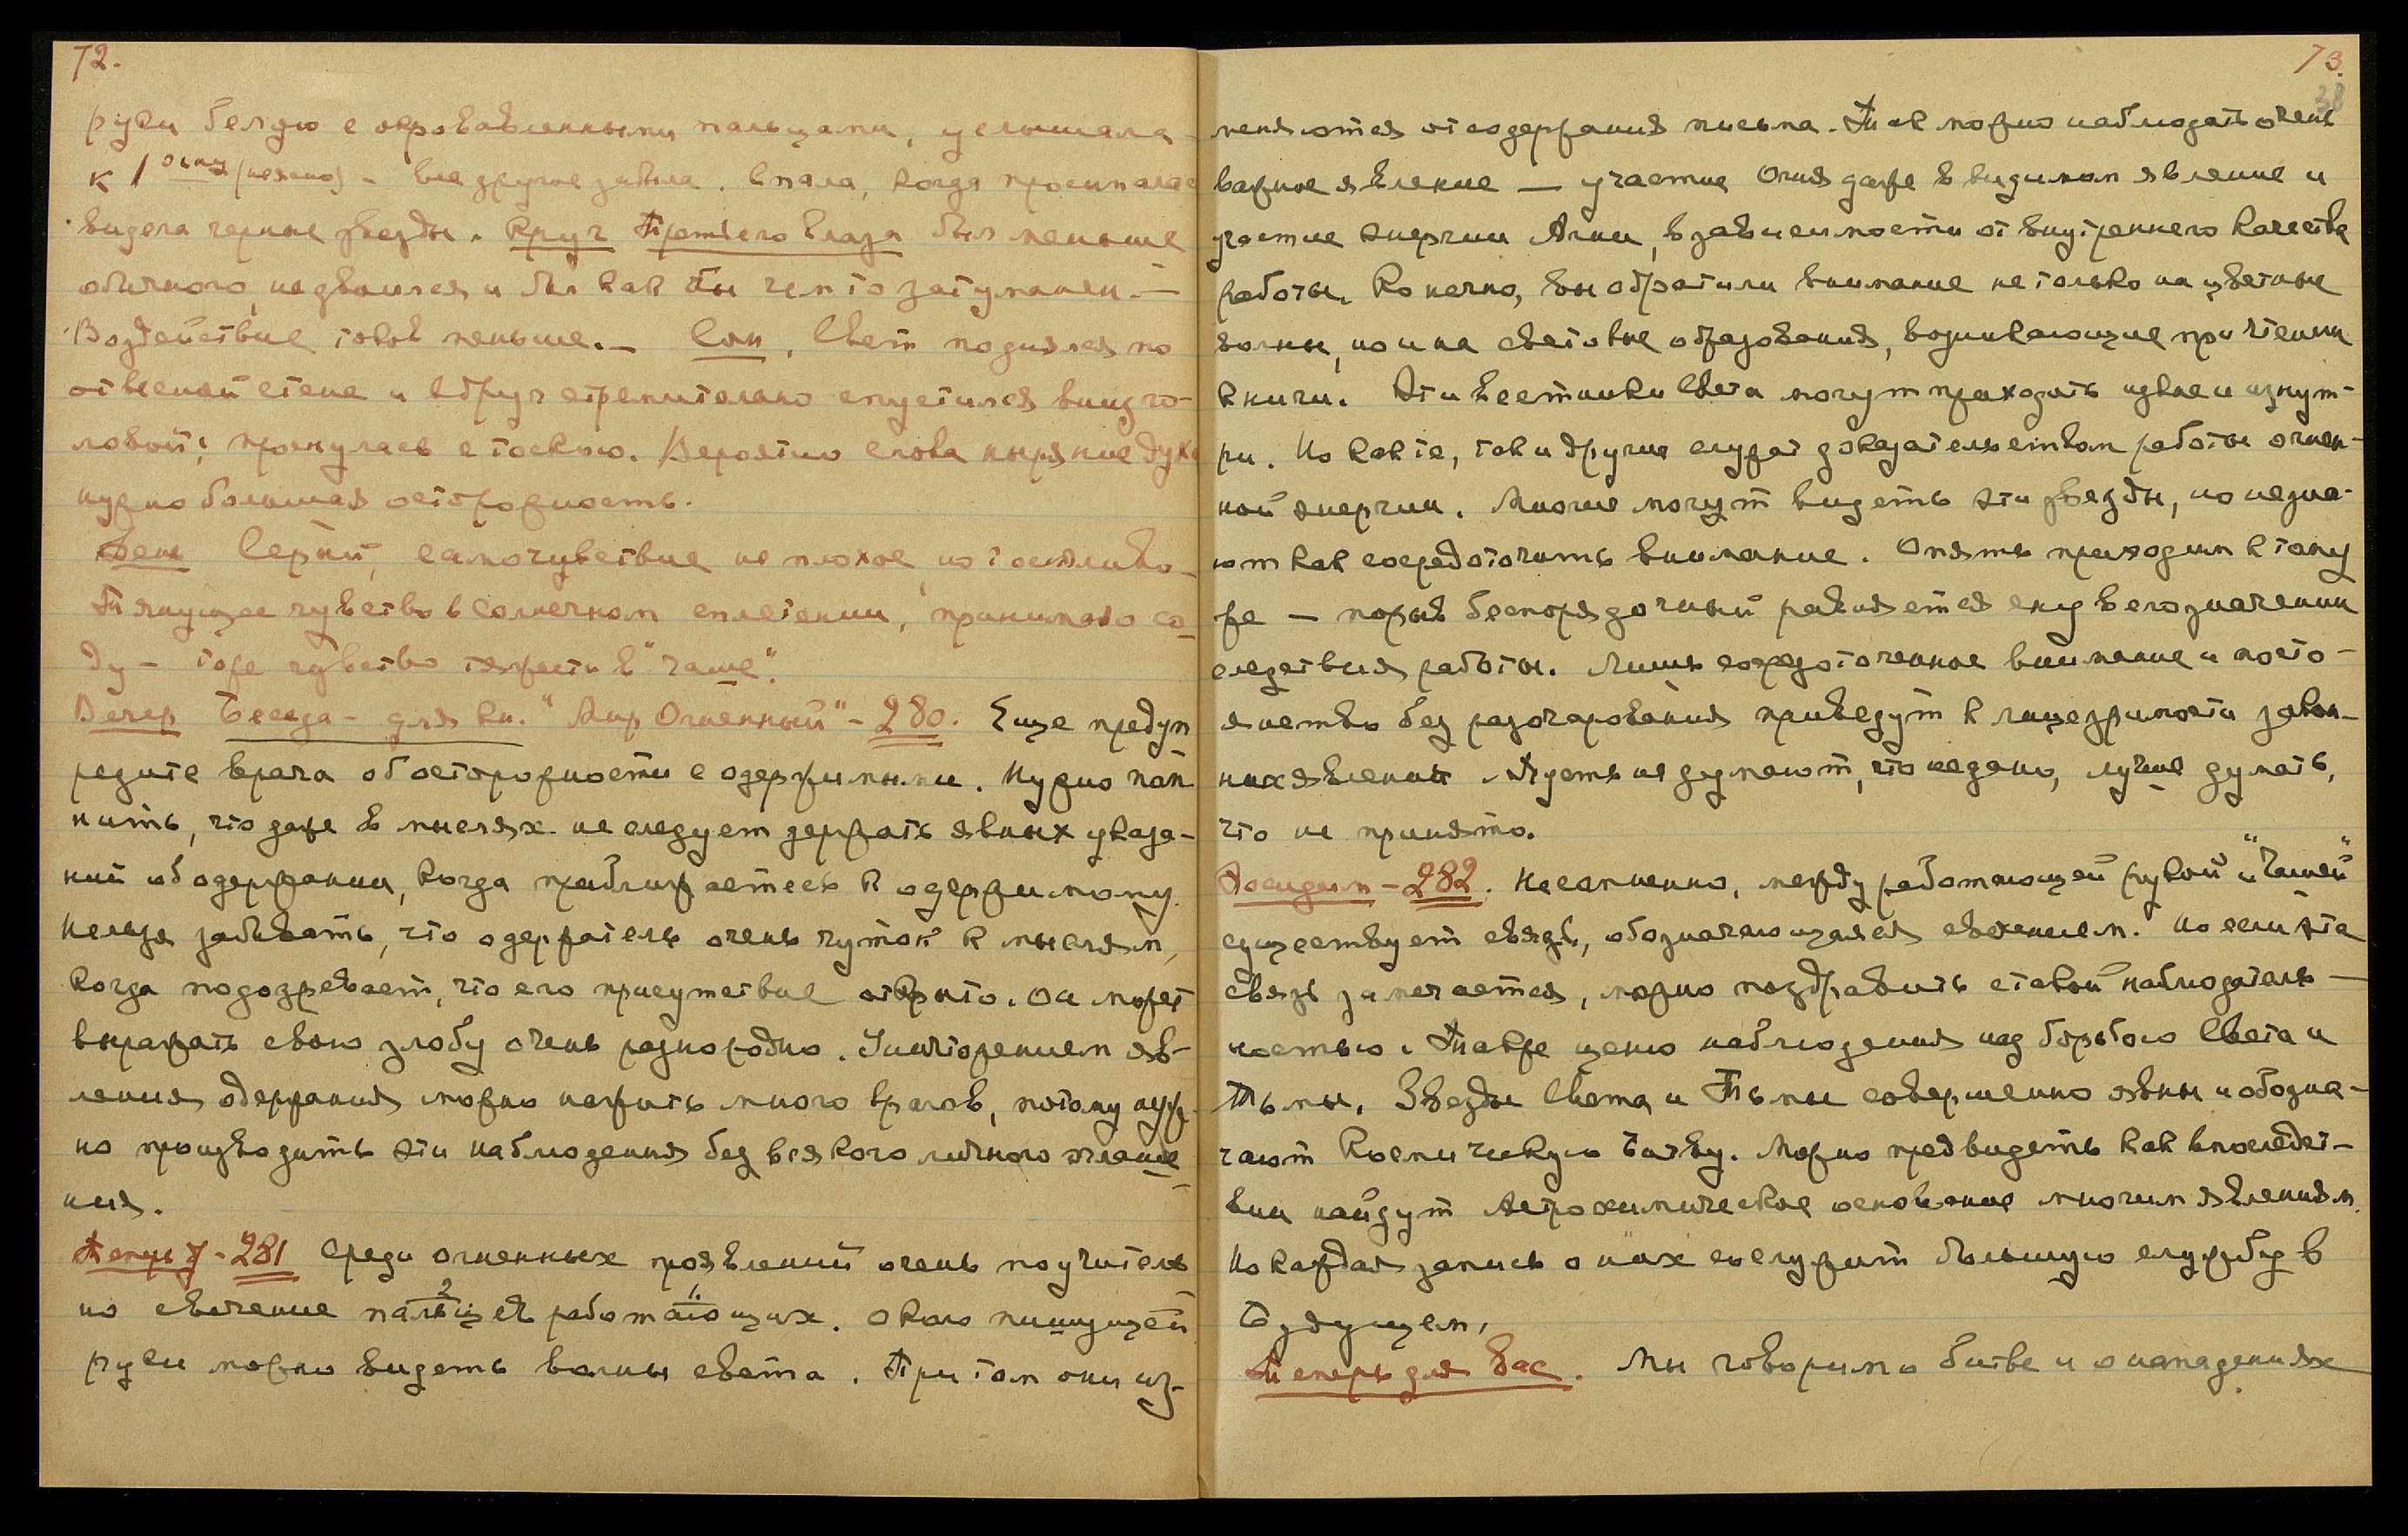 72.
руки белую с окровавленными пальцами, услышала
к 1 (неясно) - все другое забыла. Спала, когда просыпалас
видела черные звезды. Круг Третьего Глаза был меньше
обычного, не двоился и был как бы чем то затуманен. —
Воздействие токов меньше. — Сон. Свет поднялся по
отвесной стене и вдруг стремительно спустился вниз го-
ловой; проснулась с тоскою. Вероятно снова ныряние духа
нужно большая осторожность.
День Серый, самочувствие не плохое, но тоскливо -
Тянущее чувство в солнечном сплетении, принимаю со-
ду - тоже чувство тяжести в "чаше".
Вечер Беседа - для кн. "Мир Огненный" - 280. Еще предуп
редите врача об осторожности с одержимыми. Нужно пом
нить, что даже в мыслях не следует держать явных указа-
ний об одержании, когда приближаетесь к одержимому.
Нельзя забывать, что одержатель очень чуток к мыслям,
когда подозревает, что его присутствие открыто. Он может
выражать свою злобу очень разнородно. Уничтожением яв-
ления одержания можно нажить много врагов, потому нуж-
но производить эти наблюдения без всякого личного оглаше
ния.
Теперь - 281 Среди огненных проявлений очень поучитель
но свечение пальцев 2 работающих 1. Около пишущей
руки можно видеть волны света. При том они из-
73.
38
меняются от содержания письма. Так можно наблюдать очень
важное явление — участие Огня даже в видимом явление и
участие энергии Агни, в зависимости от внутреннего качества
работы. Конечно, вы обратили внимание не только на цветные
волны, но и на световые образования, возникающие при чтении
книги. Эти вестники Света могут приходить извне и изнут-
ри. Но как те, так и другие служат доказательством работы огнен-
ной энергии. Многие могут видеть эти звезды, но не зна-
ют как сосредоточить внимание. Опять приходим к тому
же — порыв беспорядочный равняется ему в его значении
следствия работы. Лишь сосредоточенное внимание и посто-
янство без разочарования приведут к лицезримости закон-
ных явлений. Пусть не думают, что не дано, лучше думать,
что не принято.
Посидим - 282. Несомненно, между работающей рукой и "Чашей"
существует связь, обозначающаяся свечением. Но если эта
связь замечается, можно поздравить с такой наблюдатель —
ностью. Также ценю наблюдения над борьбою Света и
Тьмы. Звезды Света и Тьмы совершенно явны и обозна-
чают Космическую Битву. Можно предвидеть как впоследст-
вии найдут Астрохимическое основание многим явлениям.
Но каждая запись о них сослужит большую службу в
Будущем.
Теперь для вас. Мы говорим о битве и о нападениях